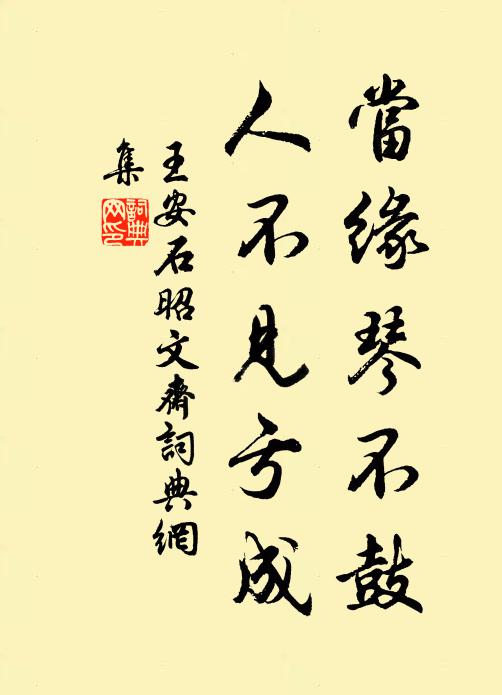 當緣琴不鼓
人不見亏成
王安石昭文齋詞典網
集
詞典
网印